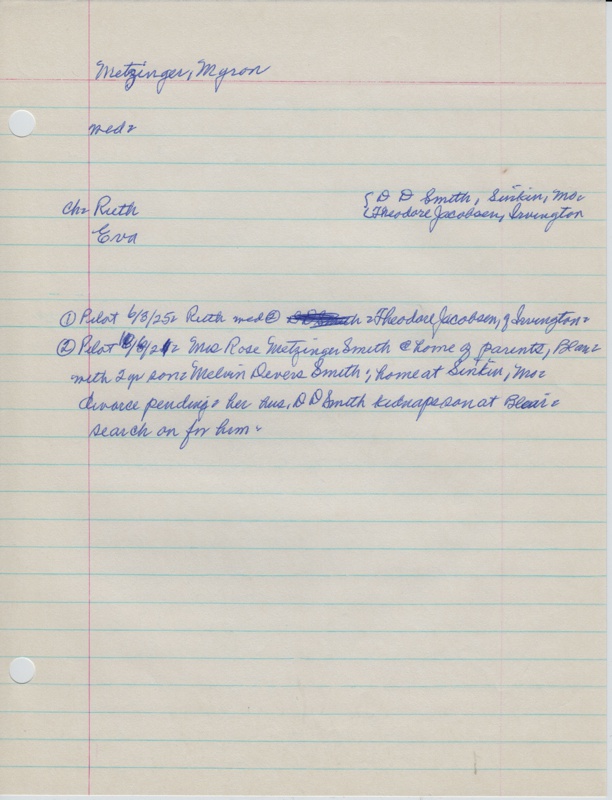 Metzinger, Myron
med=
ch= Ruth { D D Smith, Sinkin, Mo=
Eva Theodore Jacobsen, Irvington
① Pilot 6/3/25= Ruth med @ = Theodore Jacobsen, of Irvington=
② Pilot Mrs Rose Metzinger Smith @ home of parents, Blair=
with 2 yr son= Melvin Devers Smith; home at Sinkin, Mo=
divorce pending= her hus, D D Smith kidnaps son at Blair=
search on for him=